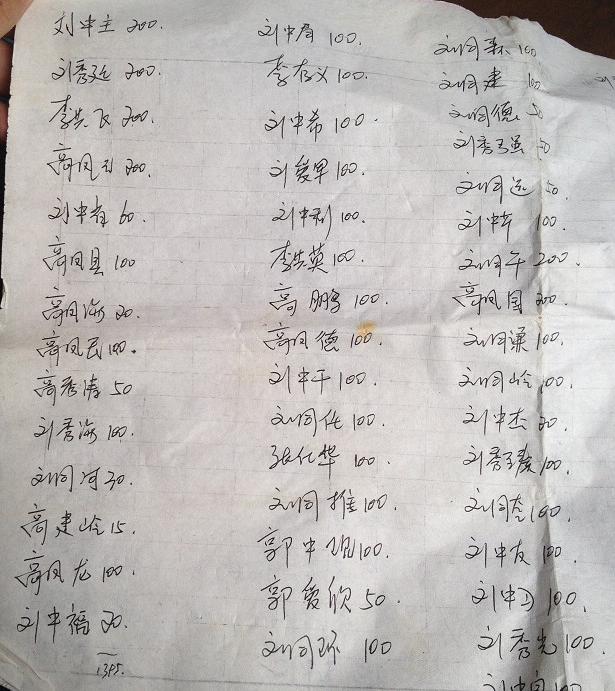 刘中主 200.
刘秀廷 200.
李洪飞 200.
高凤玉 200.
刘中省 60.
高凤县 100
高凤海 20.
高凤民 100.
高秀清 50
刘秀海 100.
刘同河 30.
高建岭 15.
高凤龙 100.
刘中福 20.
1395.
刘中眉 100.
李存义 100.
刘中希 100.
刘爱早 100.
刘中利 100.
李洪英 100.
高鹏 100.
高凤德 100.
刘中干 100.
刘同化 100.
张化华 100.
刘同推 100.
郭中现 100.
郭爱欣 50.
刘同环 100
刘同森 100
刘同建 100
刘同德 50
刘秀强 50
刘同远 50.
刘中华 100.
刘同午 200.
高凤国 200.
刘同渠 100.
刘同岭 100.
刘中杰 20.
刘秀俊 100.
刘同 100.
刘中友 100.
刘中 100.
刘秀光 100.
刘中 100